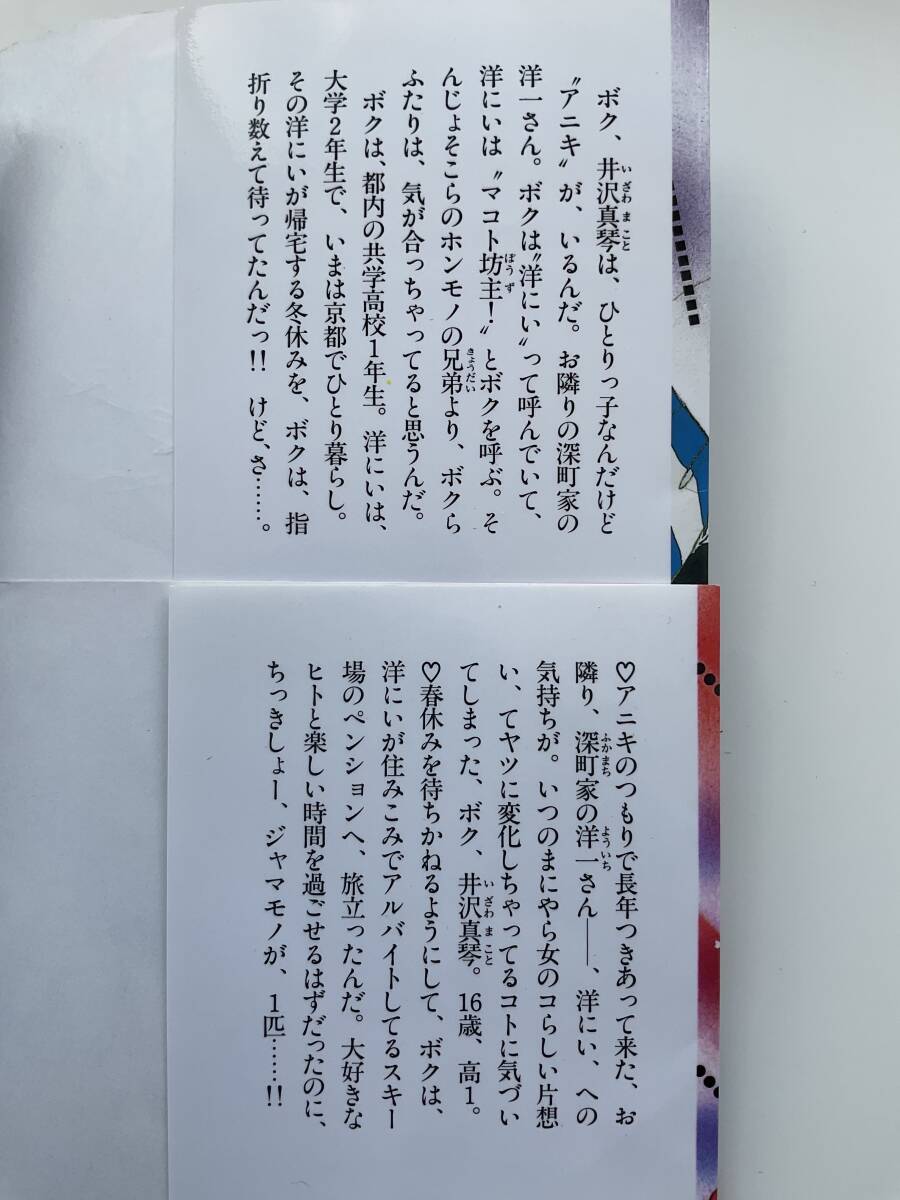 ボク、井沢真琴は、ひとりっ子なんだけど
〝アニキ〟が、いるんだ。お隣りの深町家の
洋一さん。ボクは〝洋にい〟って呼んでいて、
洋にいは〝マコト坊主！〟とボクを呼ぶ。そ
んじょそこらのホンモノの兄弟より、ボクら
ふたりは、気が合っちゃってると思うんだ。
ボクは、都内の共学高校1年生。洋にいは、
大学2年生で、いまは京都でひとり暮らし。
その洋にいが帰宅する冬休みを、ボクは、指
折り数えて待ってたんだっ!!　けど、さ……。
♡アニキのつもりで長年つきあって来た、お
隣り、深町家の洋一さん――、洋にい、への
気持ちが。いつのまにやら女のコらしい片想
い、てヤツに変化しちゃってるコトに気づい
てしまった、ボク、井沢真琴。16歳、高1。
♡春休みを待ちかねるようにして、ボクは、
洋にいが住みこみでアルバイトしてるスキー
場のペンションへ、旅立ったんだ。大好きな
ヒトと楽しい時間を過ごせるはずだったのに、
ちっきしょー、ジャマモノが、1匹……!!